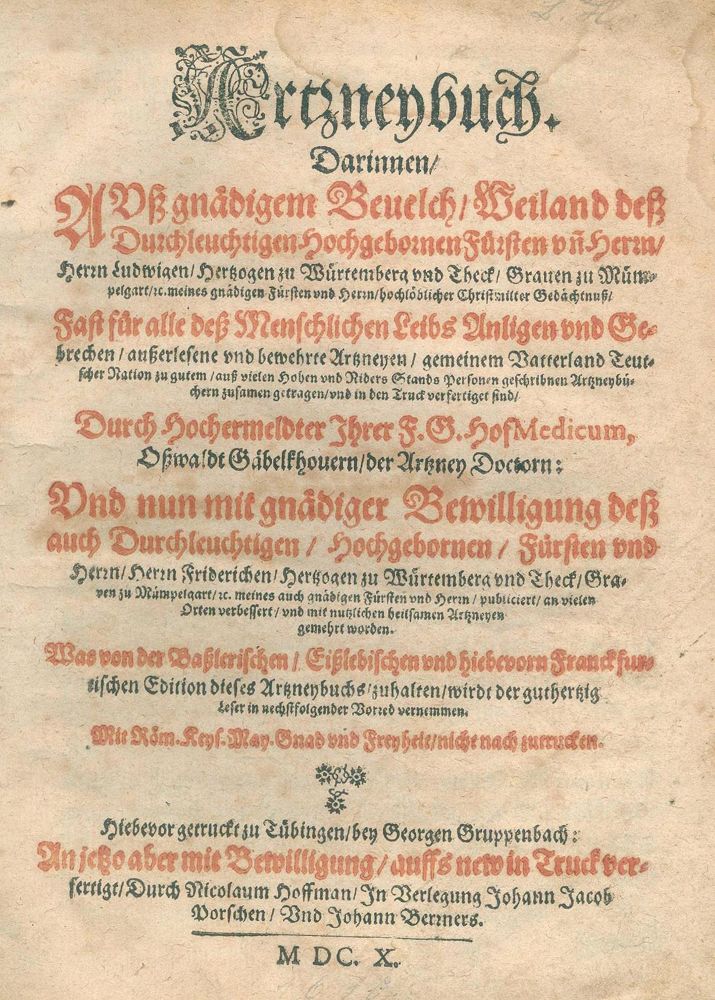 Artzneybuch.
Darinnen/
AVß gnädigem Beuelch/ Weiland deß
Durchleuchtigen Hochgebornen Fürsten vñ Herrn/
Herrn Ludwigen/ Hertzogen zu Würtemberg vnd Theck/ Grauen zu Müm-
pelgart/ ꝛc. meines gnädigen Fürsten vnd Herrn/ hochlöblicher Christmilter Gedächtnuß/
Fast für alle deß Menschlichen Leibs Anligen vnd Ge-
brechen/ außerlesene vnd bewehrte Artzneyen/ gemeinem Vatterland Teut-
scher Nation zu gutem/ auß vielen Hohen vnd Niders Stands Personen geschribnen Artzneybü-
chern zusamen getragen/ vnd in den Truck verfertiget sind/
Durch Hochermeldter Jhrer F. G. HofMedicum,
Oßwaldt Gäbelkhouern/ der Artzney Doctorn:
Vnd nun mit gnädiger Bewilligung deß
auch Durchleuchtigen/ Hochgebornen/ Fürsten vnd
Herrn/ Herrn Friderichen/ Hertzogen zu Würtemberg vnd Theck/ Gra-
ven zu Mümpelgart/ ꝛc. meines auch gnädigen Fürsten vnd Herrn/ publiciert/ an vielen
Orten verbessert/ vnd mit nutzlichen heilsamen Artzneyen
gemehrt worden.
Was von der Baßlerischen/ Eißlebischen vnd hiebevorn Franckfur-
tischen Edition dieses Artzneybuchs/ zuhalten/ wirdt der guthertzig
Leser in nechstfolgender Vorred vernemmen.
Mit Röm. Keys. May. Gnad vnd Freyheit/ nicht nach zutrucken.
Hiebevor getruckt zu Tübingen/ bey Georgen Gruppenbach:
An jetzo aber mit Bewilligung/ auffs new in Truck ver-
fertigt/ Durch Nicolaum Hoffman/ Jn Verlegung Johann Jacob
Porschen/ Vnd Johann Berners.
M DC. X.